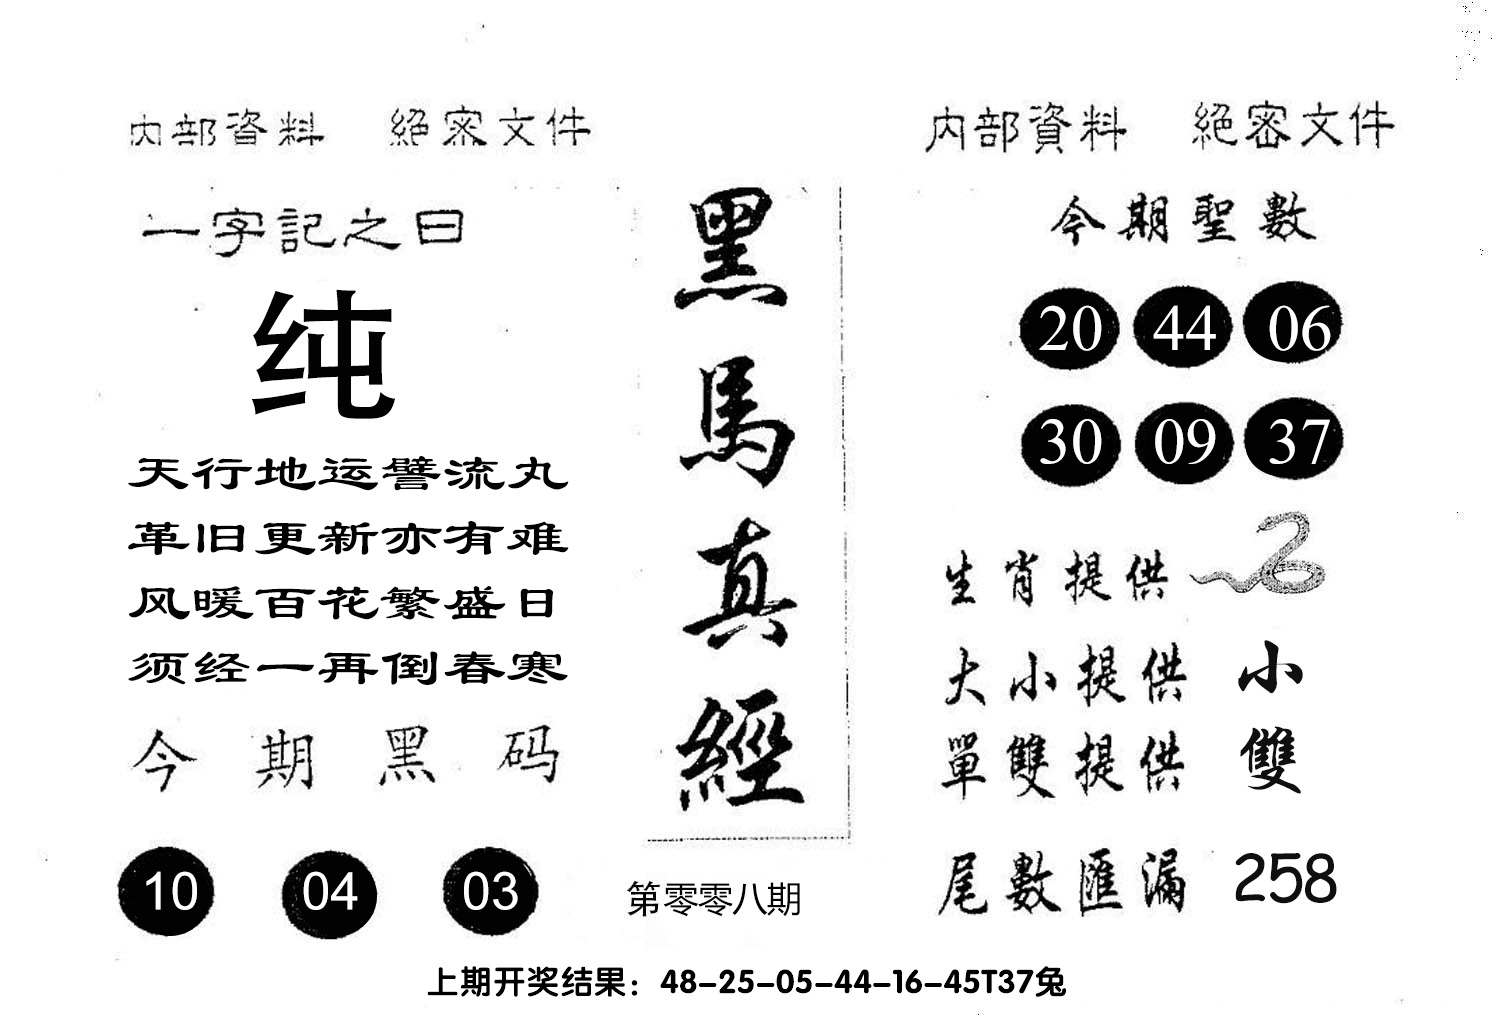 内部資料 絕密文件
一字記之曰
纯
天行地运譬流丸
革旧更新亦有难
风暖百花繁盛日
须经一再倒春寒
今期黑码
10 04 03
黑馬真經
第零零八期
内部資料 絕密文件
今期聖數
20 44 06
30 09 37
生肖提供
大小提供 小
單雙提供 雙
尾數匯漏 258
上期开奖结果：48-25-05-44-16-45T37兔